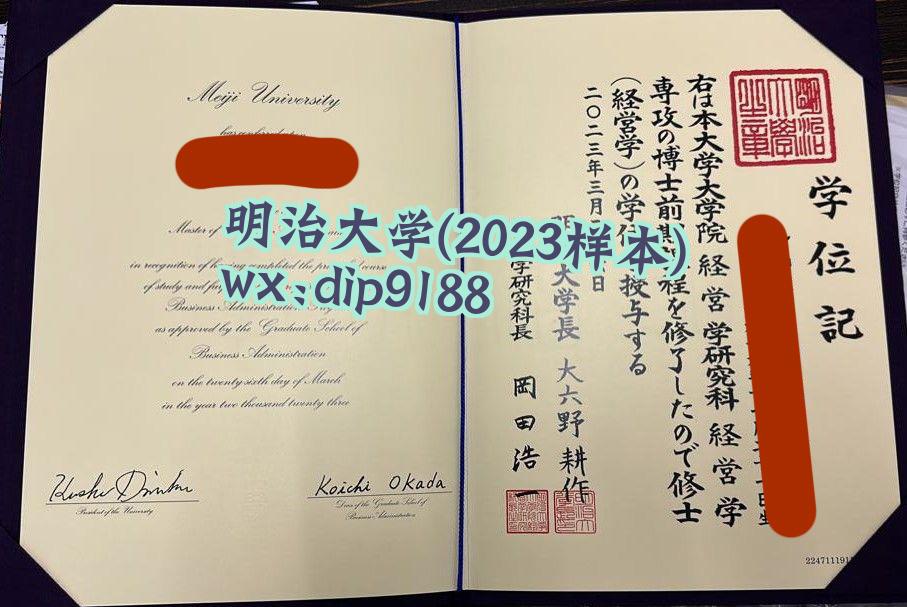 Meiji University
has conferred upon
Master of
in recognition of having completed the
of study and
Business Administration
as approved by the Graduate School of
Business Administration
on the twenty sixth day of March
in the year two thousand twenty three
President of the University
Koichi Okada
Dean of the Graduate School of
Business Administration
明治大学(2023样本)
wx:dip9188
明治
大学
之章
学位記
右は本大学大学院経営学研究科経営学
専攻の博士前期課程を修了したので修士
(経営学)の学位を授与する
二〇二三年三月
大学長 大六野耕作
学研究科長 岡田浩一